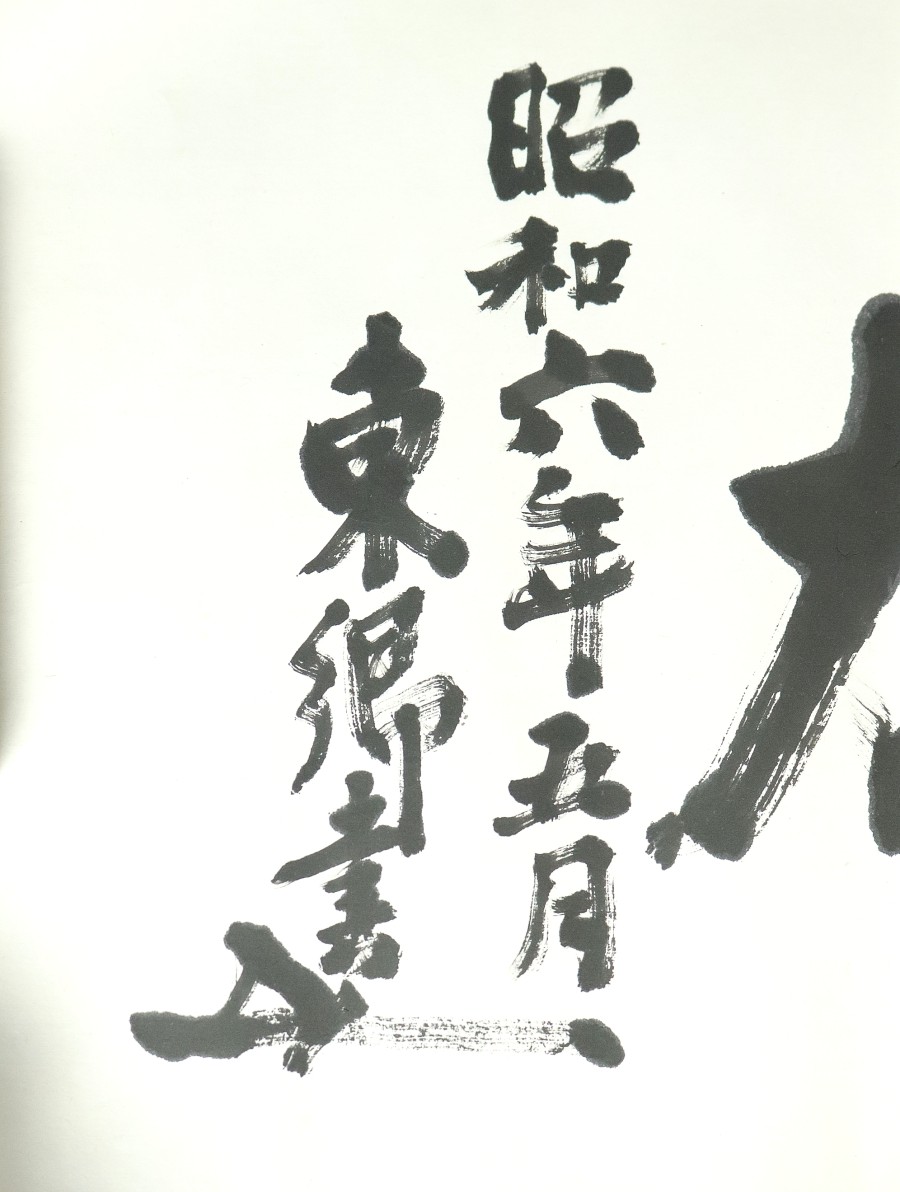 昭和六年五月
東郷書